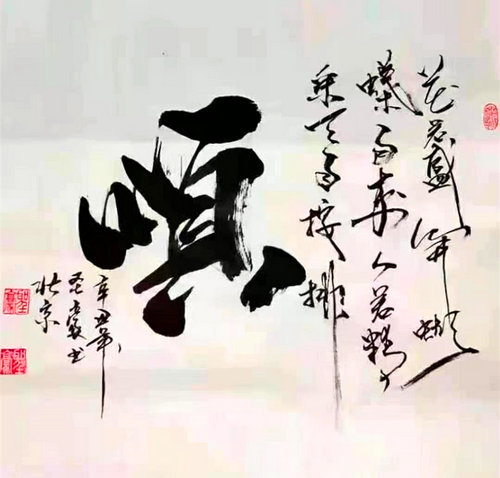 花若盛开蝴
蝶自来人若精
采天自按排
顺
辛丑年
书
北京